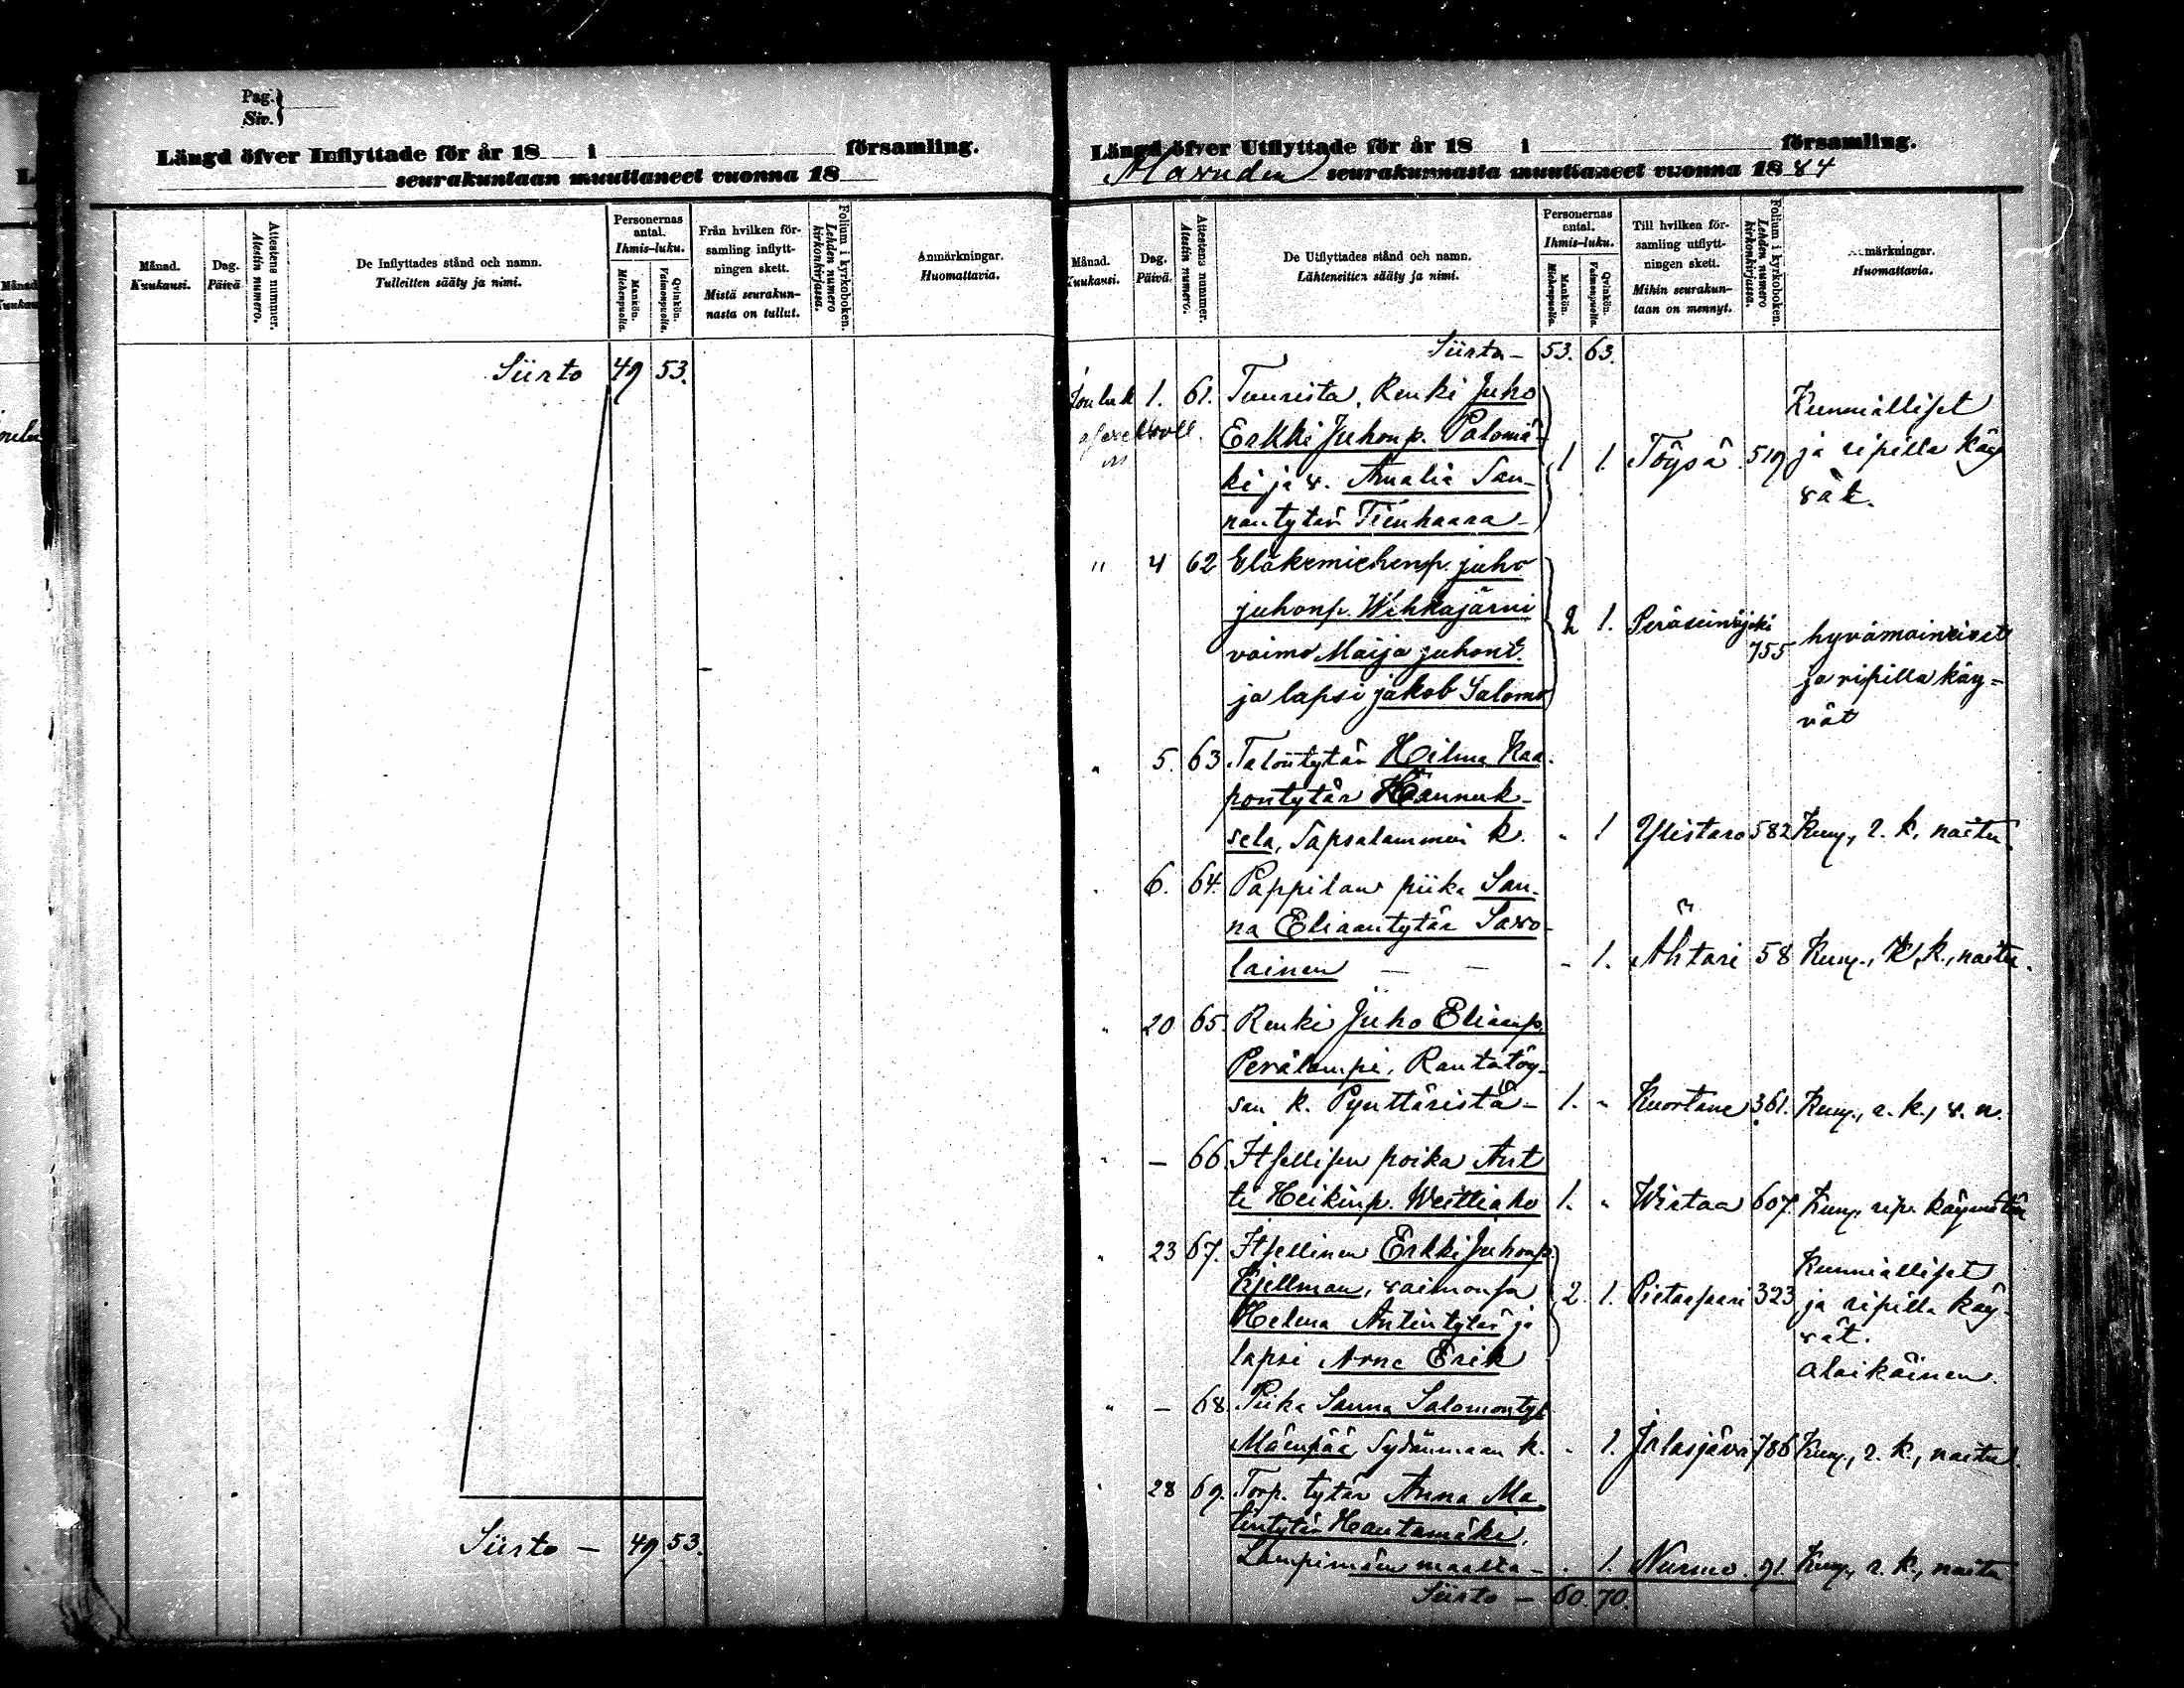 Pag.
Siv.
Längd öfver Inflyttade för år 18 i församling.
seurakuntaan muuttaneet vuonna 18
Månad.
Kuukausi.
Dag.
Päivä
Attestens nummer.
Atestin numero.
De Inflyttades stånd och namn.
Tulleitten sääty ja nimi.
Personernas antal.
Ihmis-luku.
Mankön.
Miehenpuolia.
Qvinkön.
Vaimonpuolia.
Från hvilken för-
samling inflytt-
ningen skett.
Mistä seurakun-
nasta on tullut.
Folium i kyrkoboken.
Lehden numero
kirkonkirjassa.
Anmärkningar.
Huomattavia.
Siirto 49 53.
Siirto — 49 53.
Längd öfver Utflyttade för år 18 i församling.
Alavuden seurakunnasta muuttaneet vuonna 1884
Månad.
Kuukausi.
Dag.
Päivä.
Attestens nummer.
Atestin numero.
De Utflyttades stånd och namn.
Lähteneitten sääty ja nimi.
Personernas antal.
Ihmis-luku.
Mankön.
Miehenpuolia.
Qvinkön.
Vaimonpuolia.
Till hvilken för-
samling utflytt-
ningen skett.
Mihin seurakun-
taan on mennyt.
Folium i kyrkoboken.
Lehden numero
kirkonkirjassa.
Anmärkningar.
Huomattavia.
Siirto — 53. 63.
Jouluk 1. 61. Tuurista, Renki Juho
Erkki Juhonp. Palomä-
ki ja v. Amalia San-
nantytär Tienhaara —
1 1. Töysä 519
Kunnialliset
ja ripillä käy
vät.
" 4 62 Eläkemiehenp. Juho
Juhonp. Wehkajärvi
vaimo Maija Juhont.
ja lapsi Jakob Salomo
2 1. Peräseinäjoki
755
hyvämaineiset
ja ripillä käy-
vät
" 5. 63 Talontytär Hilma Kaa-
pontytär Hannuk-
sela, Sapsalammin k. " 1 Ylistaro 582 Kuny., r. k., naitu.
" 6. 64. Pappilan piika San-
na Eliaantytär Savo-
lainen — — " 1. Ähtäri 58 Kuny., r. k., naitu.
" 20 65. Renki Juho Elianp.
Perälampi, Rantatöy-
sän k. Pynttäristä — 1. " Kuortane 361. Kuny., r. k., v. n.
" — 66. Itsellisen poika Ant
ti Heikinp. Weittiaho 1. " Wirtaa 607. Kuny. rip. käymätön
" 23 67. Itsellinen Erkki Juhonp.
Kjellman, vaimonsa
Helena Antintytär ja
lapsi Arne Erik
2. 1. Pietarsaari 323
Kunnialliset
ja ripillä käy-
vät.
alaikäinen.
" — 68. Piika Sanna Salomontyt
Mäenpää, Sydänmaan k. " 1. Jalasjärvi 786 Kuny., r. k., naitu.
" 28 69. Torp. tytär Anna Ma
tintytär Hautamäki,
Lampimäen maalta — " 1. Nurmo. 91. Kuny., r. k., naitu
Siirto — 60. 70.